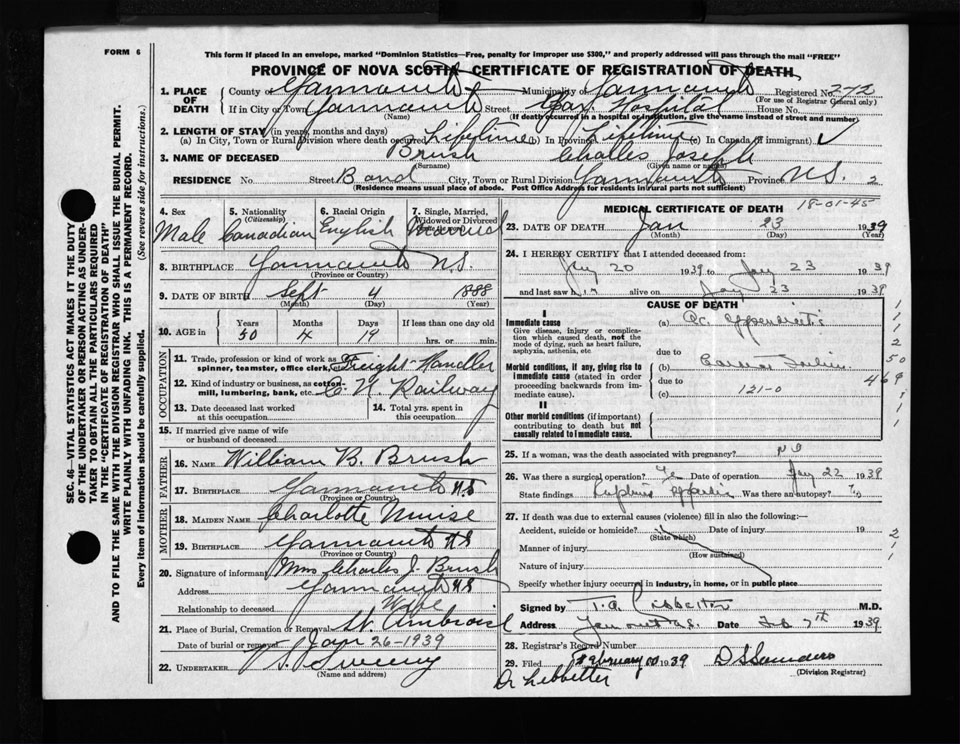 FORM 6
This form if placed in an envelope, marked "Dominion Statistics—Free, penalty for improper use $300," and properly addressed will pass through the mail "FREE"
PROVINCE OF NOVA SCOTIA—CERTIFICATE OF REGISTRATION OF DEATH
1. PLACE OF DEATH County of Yarmouth Municipality of Yarmouth Registered No. 272
(For use of Registrar General only)
If in City or Town Yarmouth Street Hospital House No.
(Name) (If death occurred in a hospital or institution, give the name instead of street and number)
2. LENGTH OF STAY (in years, months and days)
(a) In City, Town or Rural Division where death occurred Lifetime (b) In Province Lifetime (c) In Canada (if immigrant)
3. NAME OF DECEASED Brush Charles Joseph
(Surname) (Given name or names)
RESIDENCE No. Street Bond City, Town or Rural Division Yarmouth Province N.S. 2
(Residence means usual place of abode. Post Office Address for residents in rural parts not sufficient)
4. Sex Male
5. Nationality (Citizenship) Canadian
6. Racial Origin English
7. Single, Married, Widowed or Divorced Married
8. BIRTHPLACE Yarmouth N.S.
(Province or Country)
9. DATE OF BIRTH Sept 4 1888
(Month) (Day) (Year)
10. AGE in Years 50 Months 4 Days 19 If less than one day old hrs. or min.
OCCUPATION
11. Trade, profession or kind of work as spinner, teamster, office clerk, etc. Freight Handler
12. Kind of industry or business, as cotton mill, lumbering, bank, etc. C. N. Railway
13. Date deceased last worked at this occupation
14. Total yrs. spent in this occupation
15. If married give name of wife or husband of deceased
FATHER
16. NAME William B. Brush
17. BIRTHPLACE Yarmouth N.S
(Province or Country)
MOTHER
18. MAIDEN NAME Charlotte Muise
19. BIRTHPLACE Yarmouth N.S
(Province or Country)
20. Signature of informant Mrs Charles J. Brush
Address Yarmouth N.S
Relationship to deceased Wife
21. Place of Burial, Cremation or Removal St. Ambroise
Date of burial or removal Jan 26-1939
22. UNDERTAKER Sweeny
(Name and address)
MEDICAL CERTIFICATE OF DEATH 18-01-45
23. DATE OF DEATH Jan 23 1939
(Month) (Day) (Year)
24. I HEREBY CERTIFY that I attended deceased from:
Jany 20 1939 to Jany 23 1939
and last saw him alive on Jany 23 1939
CAUSE OF DEATH
I
Immediate cause (a) Ac. appendicitis
Give disease, injury or complication which caused death, not the mode of dying, such as heart failure, asphyxia, asthenia, etc
due to
Morbid conditions, if any, giving rise to immediate cause (stated in order proceeding backwards from immediate cause).
(b)
due to
(c) 121-0
II
Other morbid conditions (if important) contributing to death but not causally related to immediate cause.
25. If a woman, was the death associated with pregnancy? No
26. Was there a surgical operation? Date of operation Jany 22 1939
State findings Was there an autopsy?
27. If death was due to external causes (violence) fill in also the following:—
Accident, suicide or homicide? Date of injury 19
(State which)
Manner of injury
(How sustained)
Nature of injury
Specify whether injury occurred in industry, in home, or in public place
Signed by M.D.
Address Yarmouth N.S. Date Feb 7th 1939
28. Registrar's Record Number
29. Filed February 1939 D S Saunders
(Division Registrar)
SEC. 46—VITAL STATISTICS ACT MAKES IT THE DUTY
OF THE UNDERTAKER OR PERSON ACTING AS UNDERTAKER TO OBTAIN ALL THE PARTICULARS REQUIRED
IN THE "CERTIFICATE OF REGISTRATION OF DEATH"
AND TO FILE THE SAME WITH THE DIVISION REGISTRAR WHO SHALL ISSUE THE BURIAL PERMIT.
WRITE PLAINLY WITH UNFADING INK. THIS IS A PERMANENT RECORD.
Every item of information should be carefully supplied. (See reverse side for instructions.)